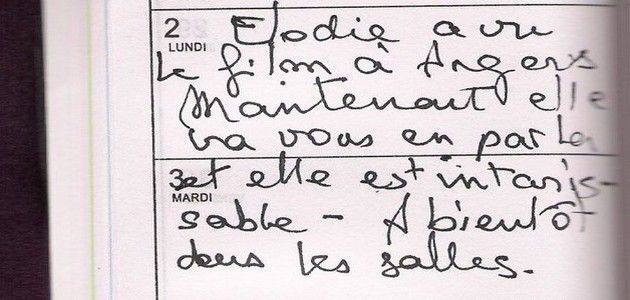 2 Elodie a vu
LUNDI
le film à Angers
Maintenant elle
va vous en parler
3 et elle est intaris-
MARDI
sable - A bientôt
dans les salles.